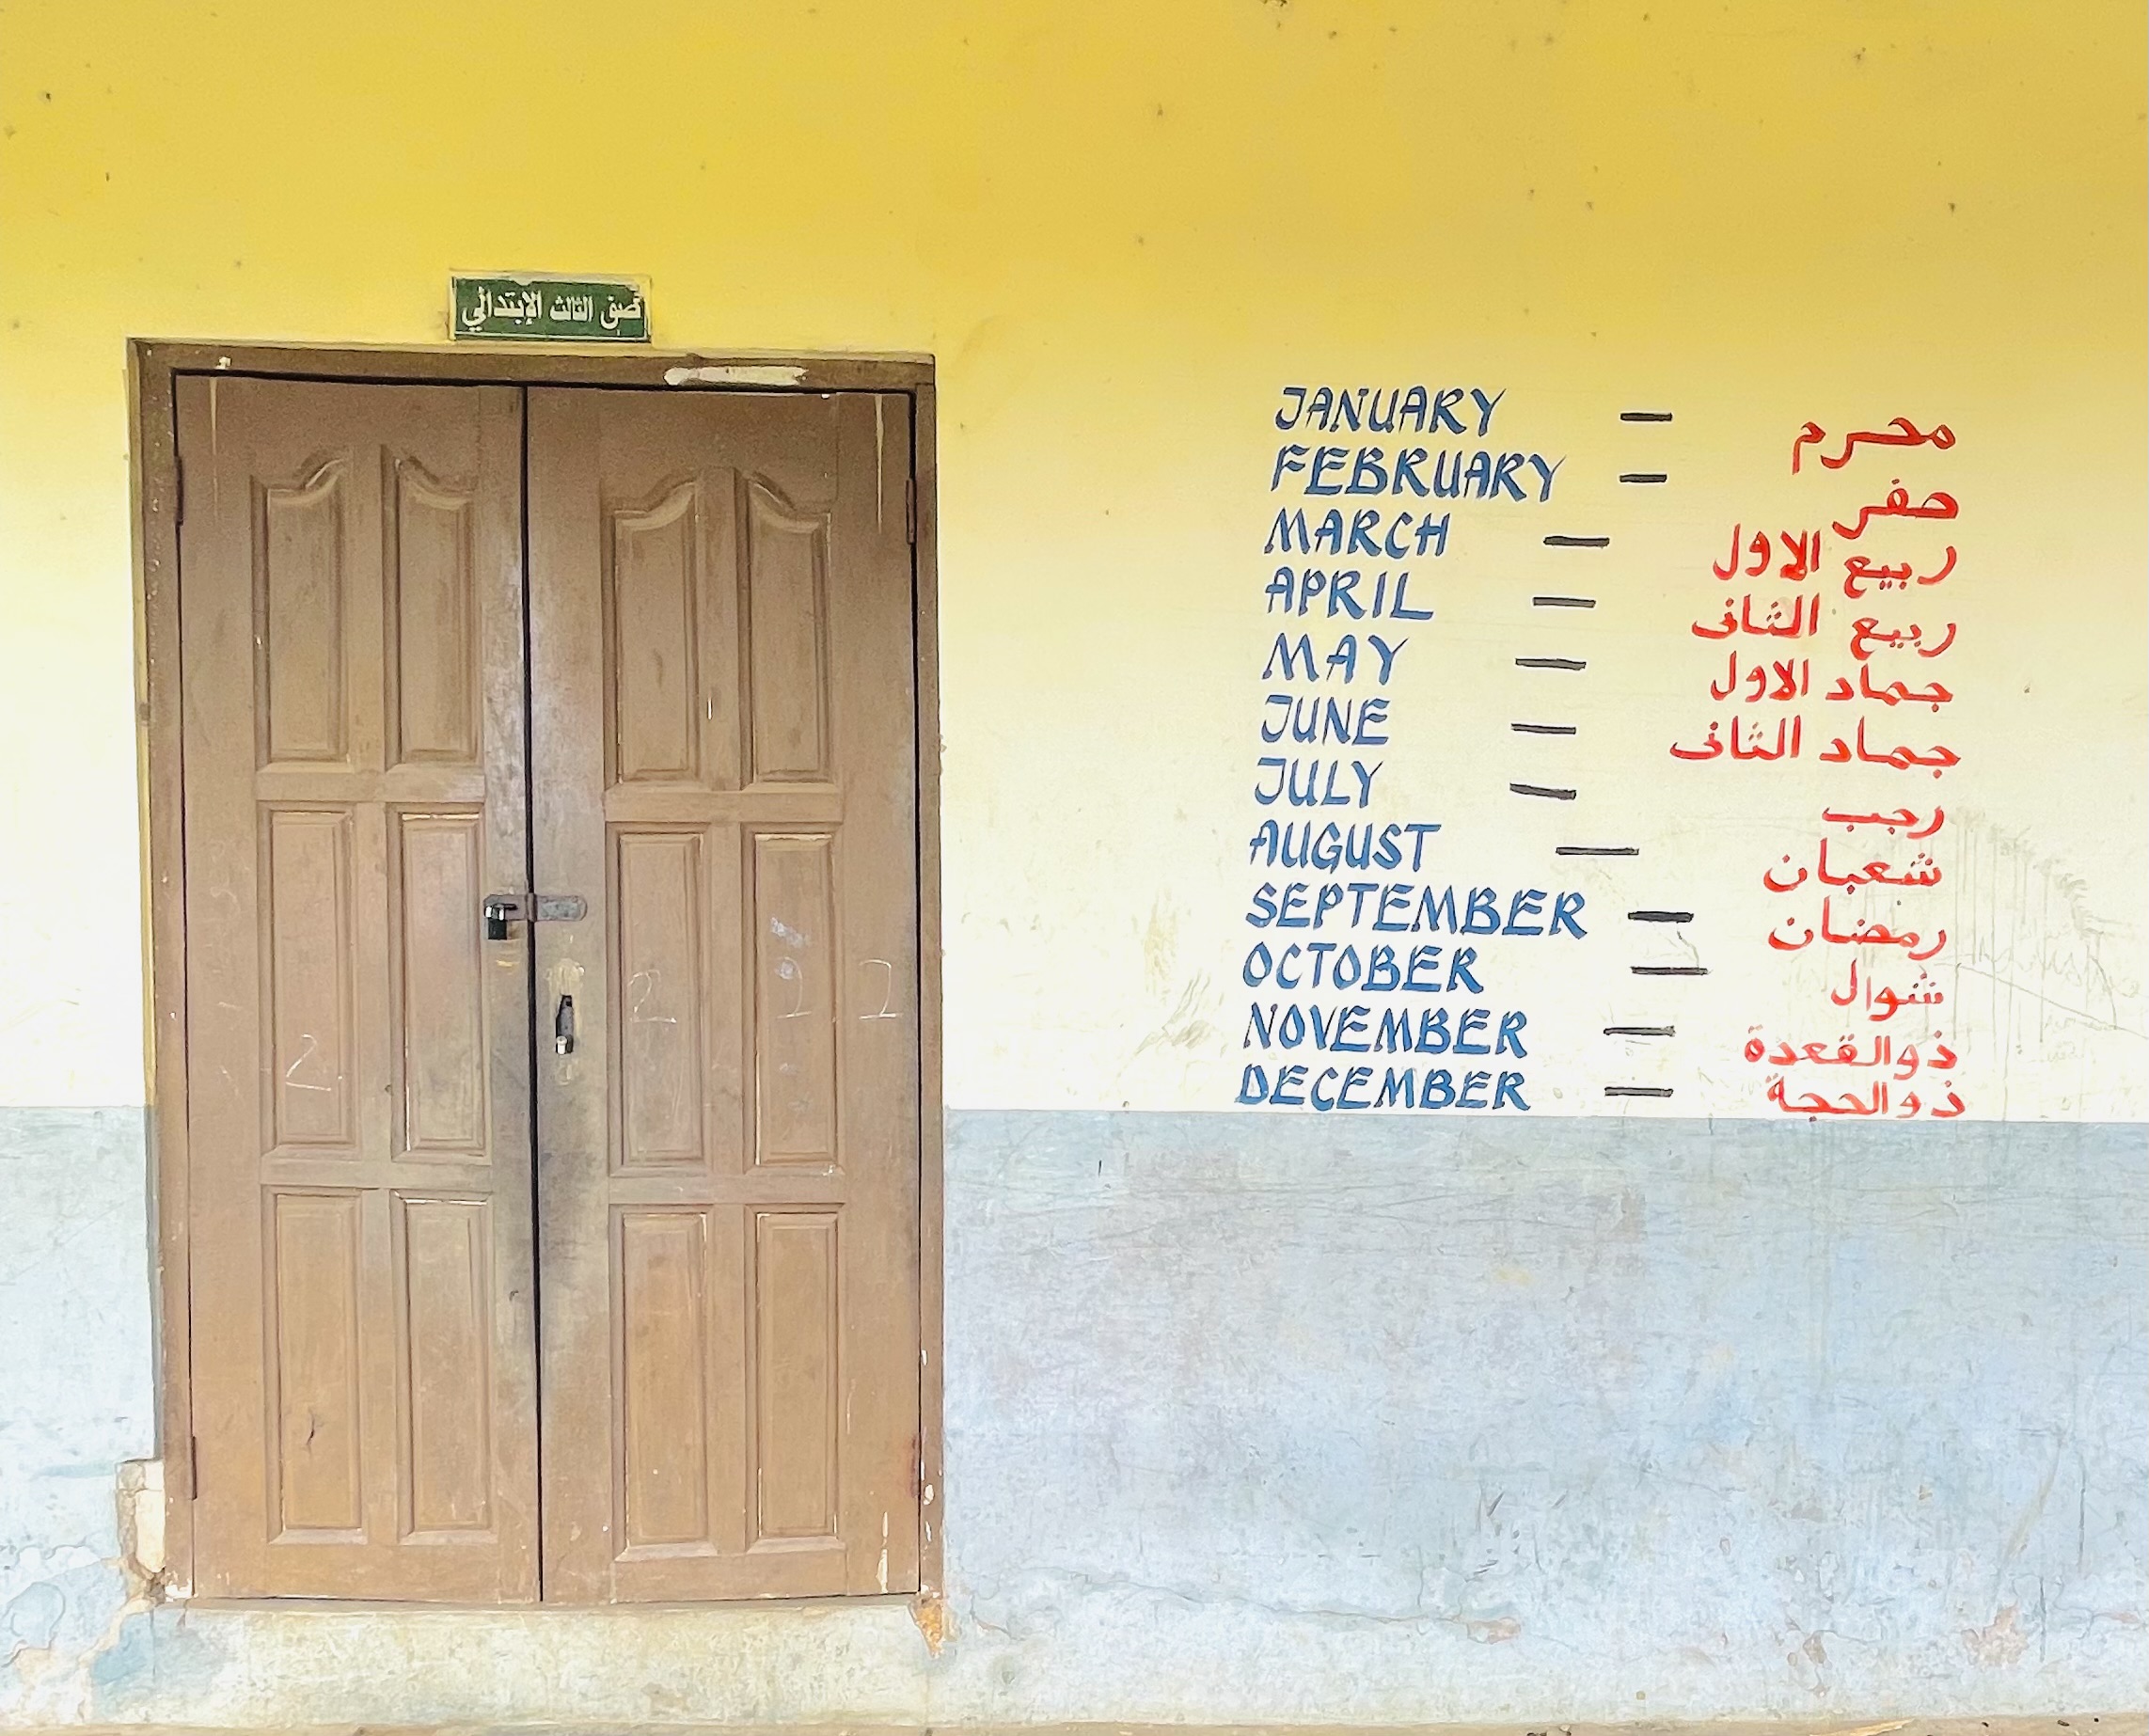 صف الثالث الإبتدائي
JANUARY — محرم
FEBRUARY — صفر
MARCH — ربيع الاول
APRIL — ربيع الثانى
MAY — جماد الاول
JUNE — جماد الثانى
JULY — رجب
AUGUST — شعبان
SEPTEMBER — رمضان
OCTOBER — شوال
NOVEMBER — ذوالقعدة
DECEMBER — ذوالحجة
2 2 2 2